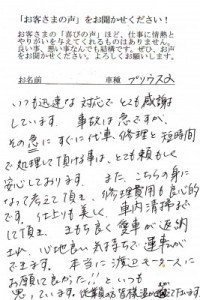 「お客さまの声」をお聞かせください！
お客さまの「喜びの声」ほど、仕事に情熱と
やりがいを与えてくれるものはありません。
良い事、悪い事なんでも結構です。ぜひ、お声
をお聞かせください。よろしくお願いします。
お名前 車種 プリウスα
いつも迅速な対応でとても感謝
しています。事故は急ですが、
その急にすぐに代車、修理と短時間
で処理して頂ける事は、とても頼もしく
安心しております。また、こちらの身に
なって考えて頂き、修理費用も良心的
です。仕上りも美しく、車内清掃まで
して頂き、まちも良く愛車が返納
され、心地良い気持ちで運転が
できます。本当に渡辺モータースに
お願いして良かった!! といつも
思っています。